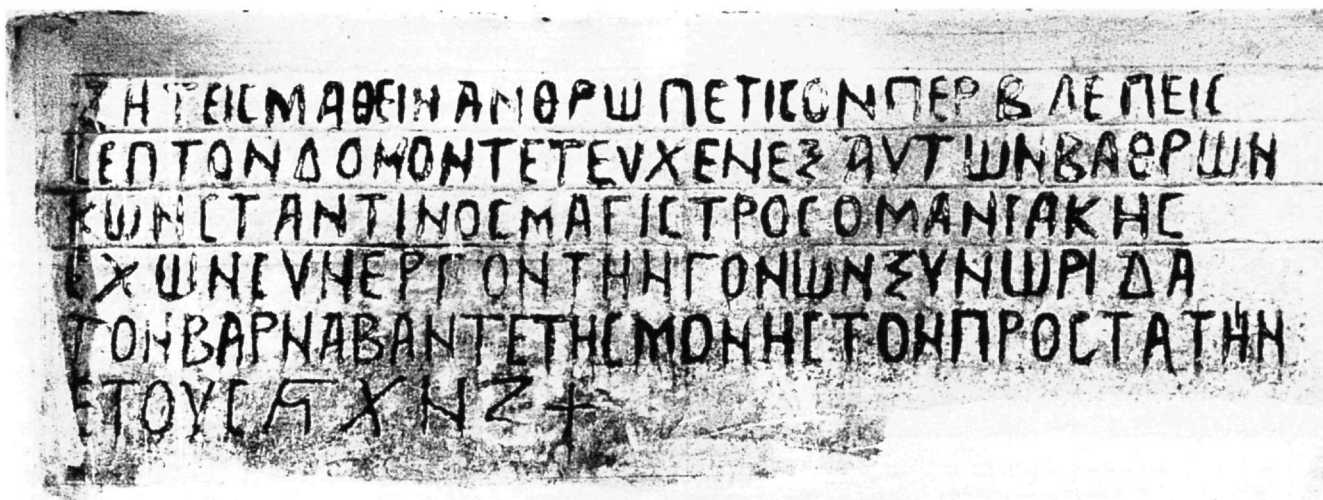 ΖΗΤΕΙCΜΑΘΕΙΝΑΝΘΡΩΠΕΤΙCΟΝΠΕΡΒΛΕΠΕΙC
CΕΠΤΟΝΔΟΜΟΝΤΕΤΕΥΧΕΝΕΞΑΥΤΩΝΒΑΘΡΩΝ
ΚΩΝCΤΑΝΤΙΝΟCΜΑΓΙCΤΡΟCΟΜΑΝΙΑΚΗC
ΕΧΩΝCΥΝΕΡΓΟΝΤΗΝΓΟΝΩΝΞΥΝΩΡΙΔΑ
ΤΟΝΒΑΡΝΑΒΑΝΤΕΤΗCΜΟΝΗCΤΟΝΠΡΟCΤΑΤΗΝ
ΕΤΟΥC ϚΧΝΖ +